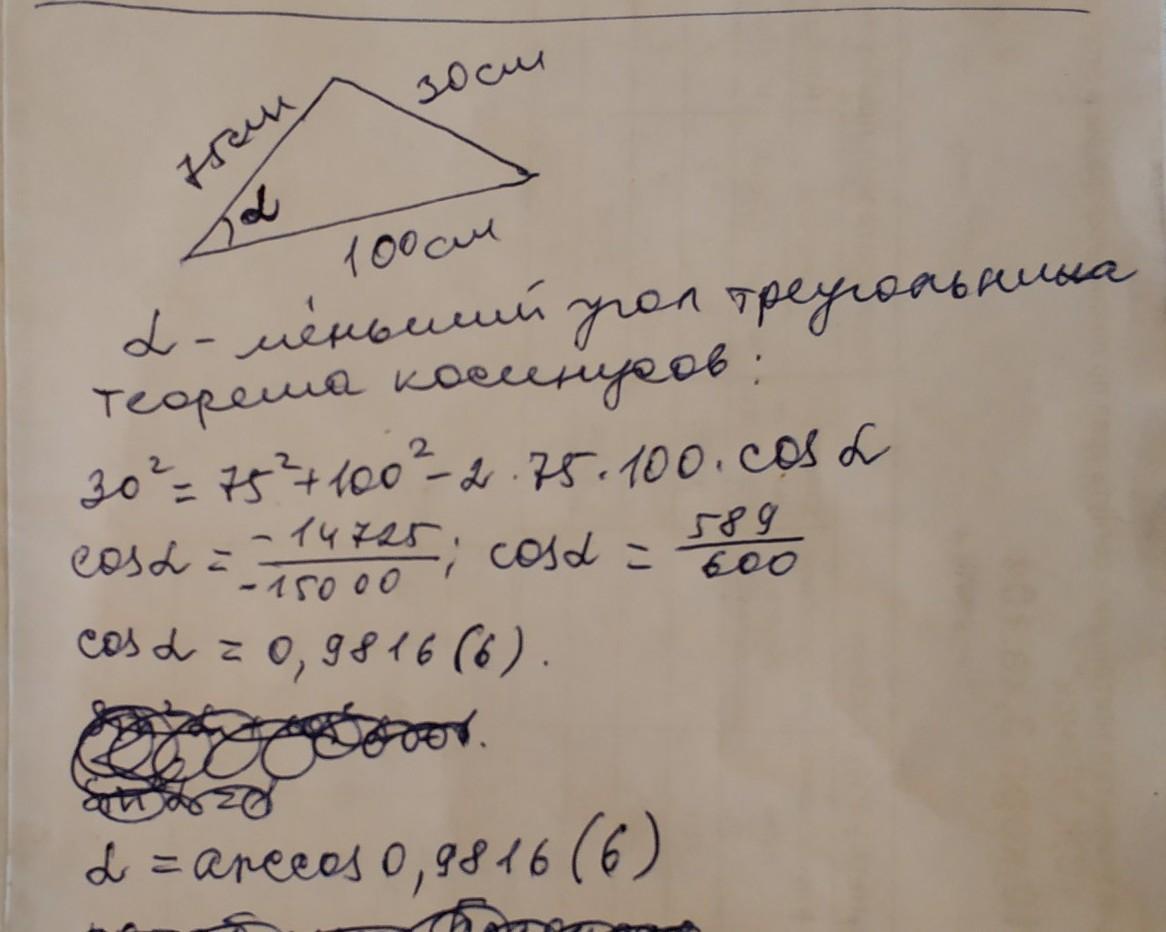 75см
30см
α
100см
α - ме́ньший угол треугольника
теорема косинусов:
30² = 75² + 100² - 2 · 75 · 100 · cos α
cosα = -14725/-15000; cosα = 589/600
cos α = 0,9816(6).
α = arccos 0,9816(6)